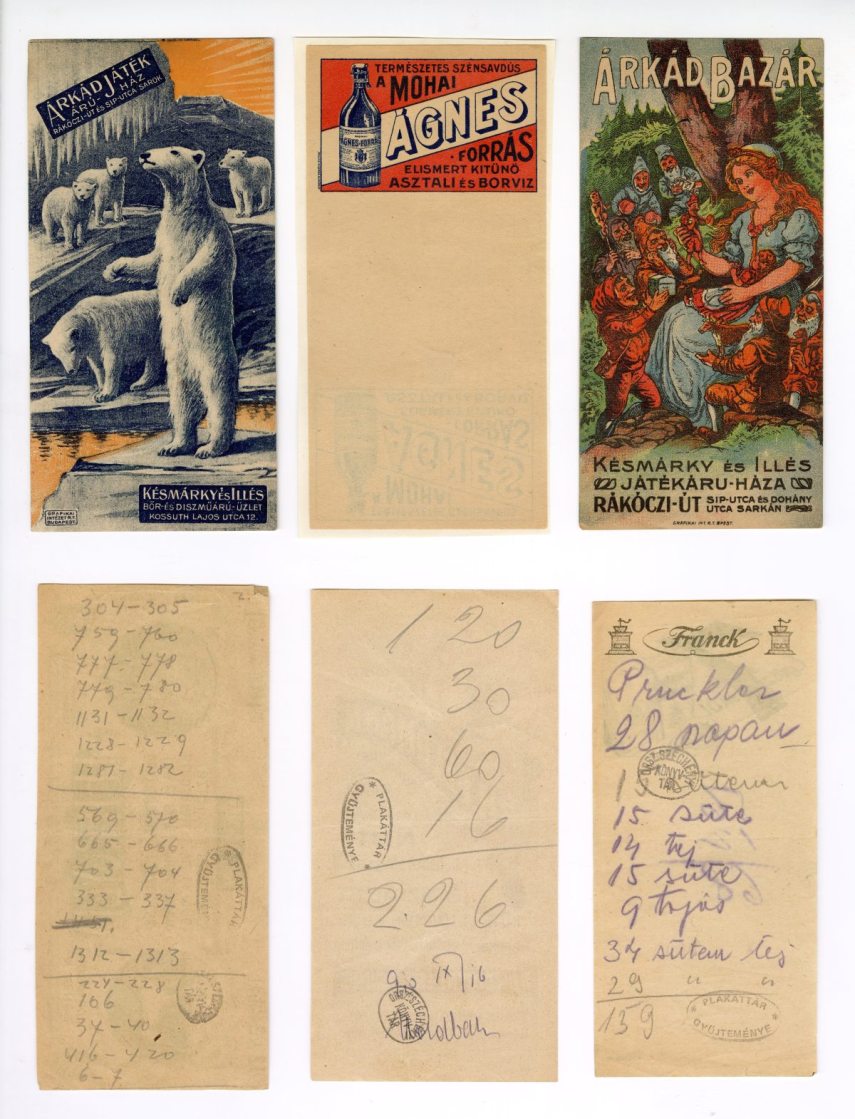 ÁRKÁD JÁTÉK
ÁRÚ-HÁZ
RÁKÓCZI-ÚT ÉS SIP-UTCA SAROK
KÉSMÁRKY ÉS ILLÉS
BŐR-ÉS DISZMŰÁRÚ-ÜZLET
KOSSUTH LAJOS UTCA 12.
GRAFIKAI
INTÉZET R.T.
BUDAPEST.
TERMÉSZETES SZÉNSAVDÚS
A MOHAI
ÁGNES
-FORRÁS
ELISMERT KITÜNŐ
ASZTALI ÉS BORVIZ
ÁGNES-FORRÁS
ÁRKÁD BAZÁR
KÉSMÁRKY ÉS ILLÉS
JÁTÉKÁRU-HÁZA
RÁKÓCZI-ÚT SIP-UTCA ÉS DOHÁNY
UTCA SARKÁN
GRAFIKAI INT. R.T. BPEST.
2.
304-305
759-760
777-778
779-780
1131-1132
1228-1229
1281-1282
569-570
665-666
703-704
333-337
1312-1313
224-228
106
34-40
416-420
6-7
* PLAKÁTTÁR *
GYÜJTEMÉNYE
120
30
60
16
226
IX/16
* PLAKÁTTÁR *
GYÜJTEMÉNYE
ORSZ. SZÉCHÉNYI
KÖNYV-
TÁR
Franck
28 napau
ORSZ. SZÉCHÉNYI
KÖNYV-
TÁR
15 süte
14 tej
15 süte
9 tojás
34 sütem tej
29 " "
159
* PLAKÁTTÁR *
GYÜJTEMÉNYE